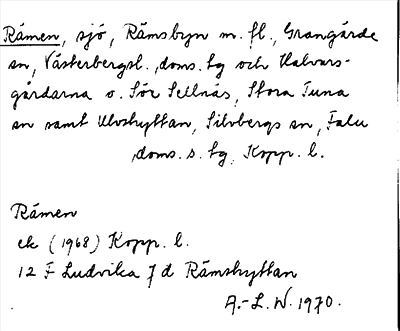 Råmen, sjö, Råmsbyn m. fl., Grangärde
sn, Västerbergsl. doms. tg och Halvars-
gårdarna o. Sör Sellnäs, Stora Tuna
sn samt Ulvshyttan, Silvbergs sn, Falu
doms. s. tg, Kopp. l.
Råmen
ek (1968) Kopp. l.
12 F Ludvika 7 d Råmshyttan
A.-L. W. 1970.